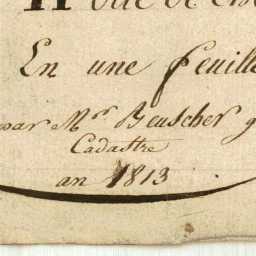 En une feuille
par Mr. Beuscher g
Cadastre
an 1813